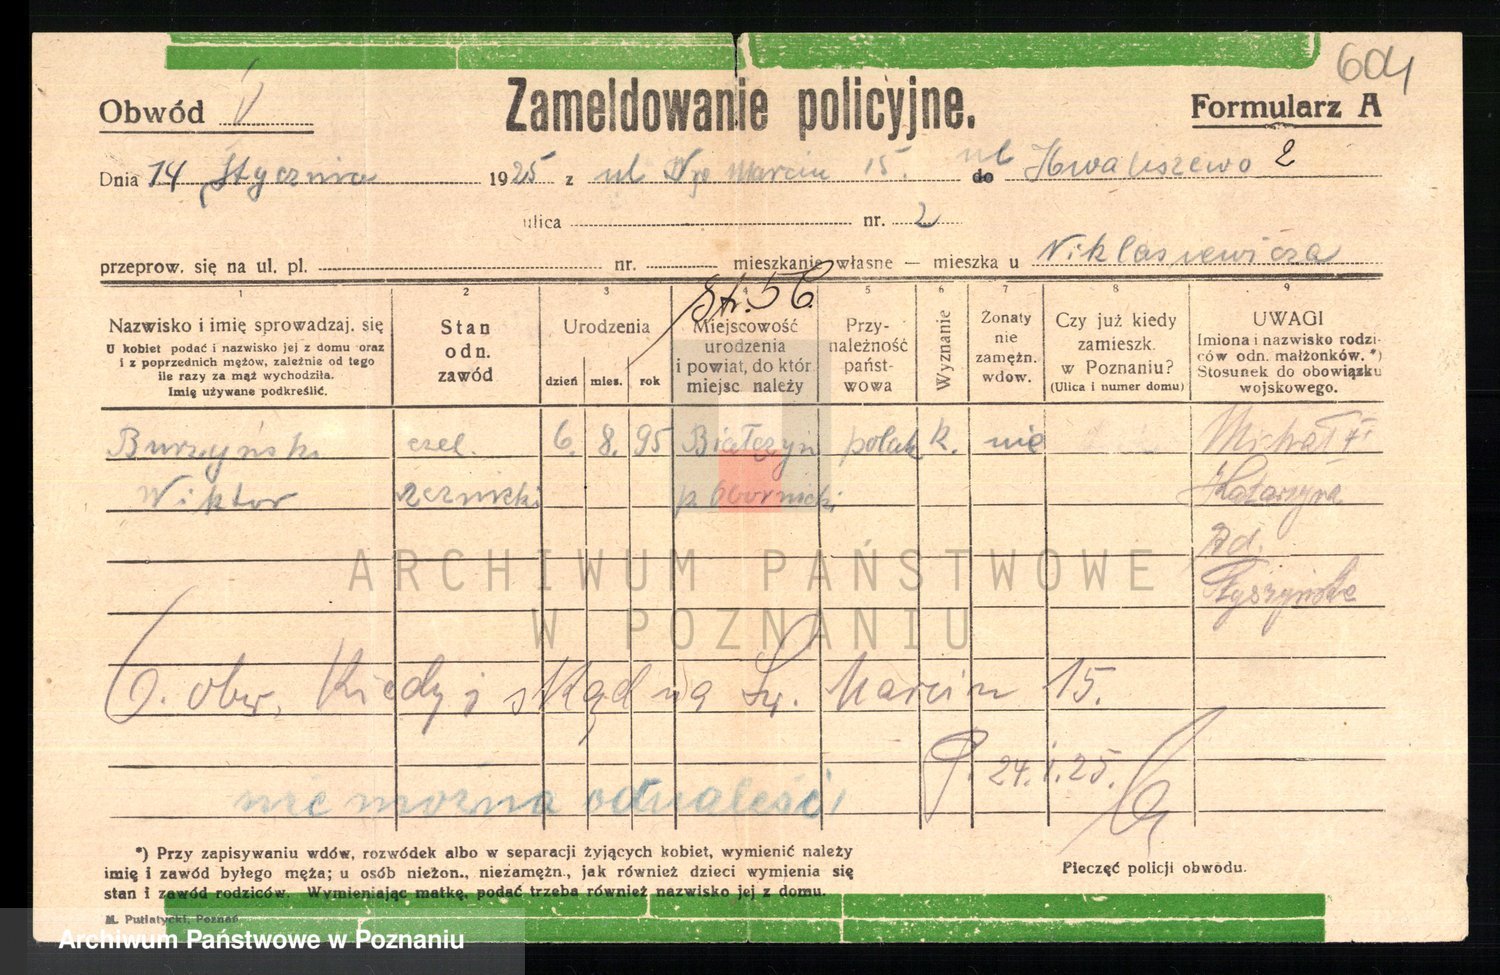 604
Obwód V
Zameldowanie policyjne.
Formularz A
Dnia 14 Stycznia 1925 z ul Św Marcin 15. do ul Chwaliszewo 2
ulica nr. 2
przeprow. się na ul. pl. nr. mieszkanie własne — mieszka u Niklasiewicza
1 2 3 4 5 6 7 8 9
Nazwisko i imię sprowadzaj. się
U kobiet podać i nazwisko jej z domu oraz
i z poprzednich mężów, zależnie od tego
ile razy za mąż wychodziła.
Imię używane podkreślić.
Stan
odn.
zawód
Urodzenia
dzień mies. rok
Miejscowość
urodzenia
i powiat, do któr.
miejsc należy
Przy-
należność
państ-
wowa
Wyznanie
Żonaty
nie
zamężn.
wdow.
Czy już kiedy
zamieszk.
w Poznaniu?
(Ulica i numer domu)
UWAGI
Imiona i nazwisko rodzi-
ców odn. małżonków. *)
Stosunek do obowiązku
wojskowego.
Burzyński czel. 6. 8. 95 Białczyn polak k. nie Michał
Wiktor rzeźnicki p. Obornicki Katarzyna
Kiedy i skąd na Św. Marcin 15.
P. 24.1.25.
nie można odnaleść
*) Przy zapisywaniu wdów, rozwódek albo w separacji żyjących kobiet, wymienić należy
imię i zawód byłego męża; u osób nieżon., niezamężn., jak również dzieci wymienia się
stan i zawód rodziców. Wymieniając matkę, podać trzeba również nazwisko jej z domu.
Pieczęć policji obwodu.
M. Putiatycki, Poznań
ARCHIWUM PAŃSTWOWE
W POZNANIU
Archiwum Państwowe w Poznaniu